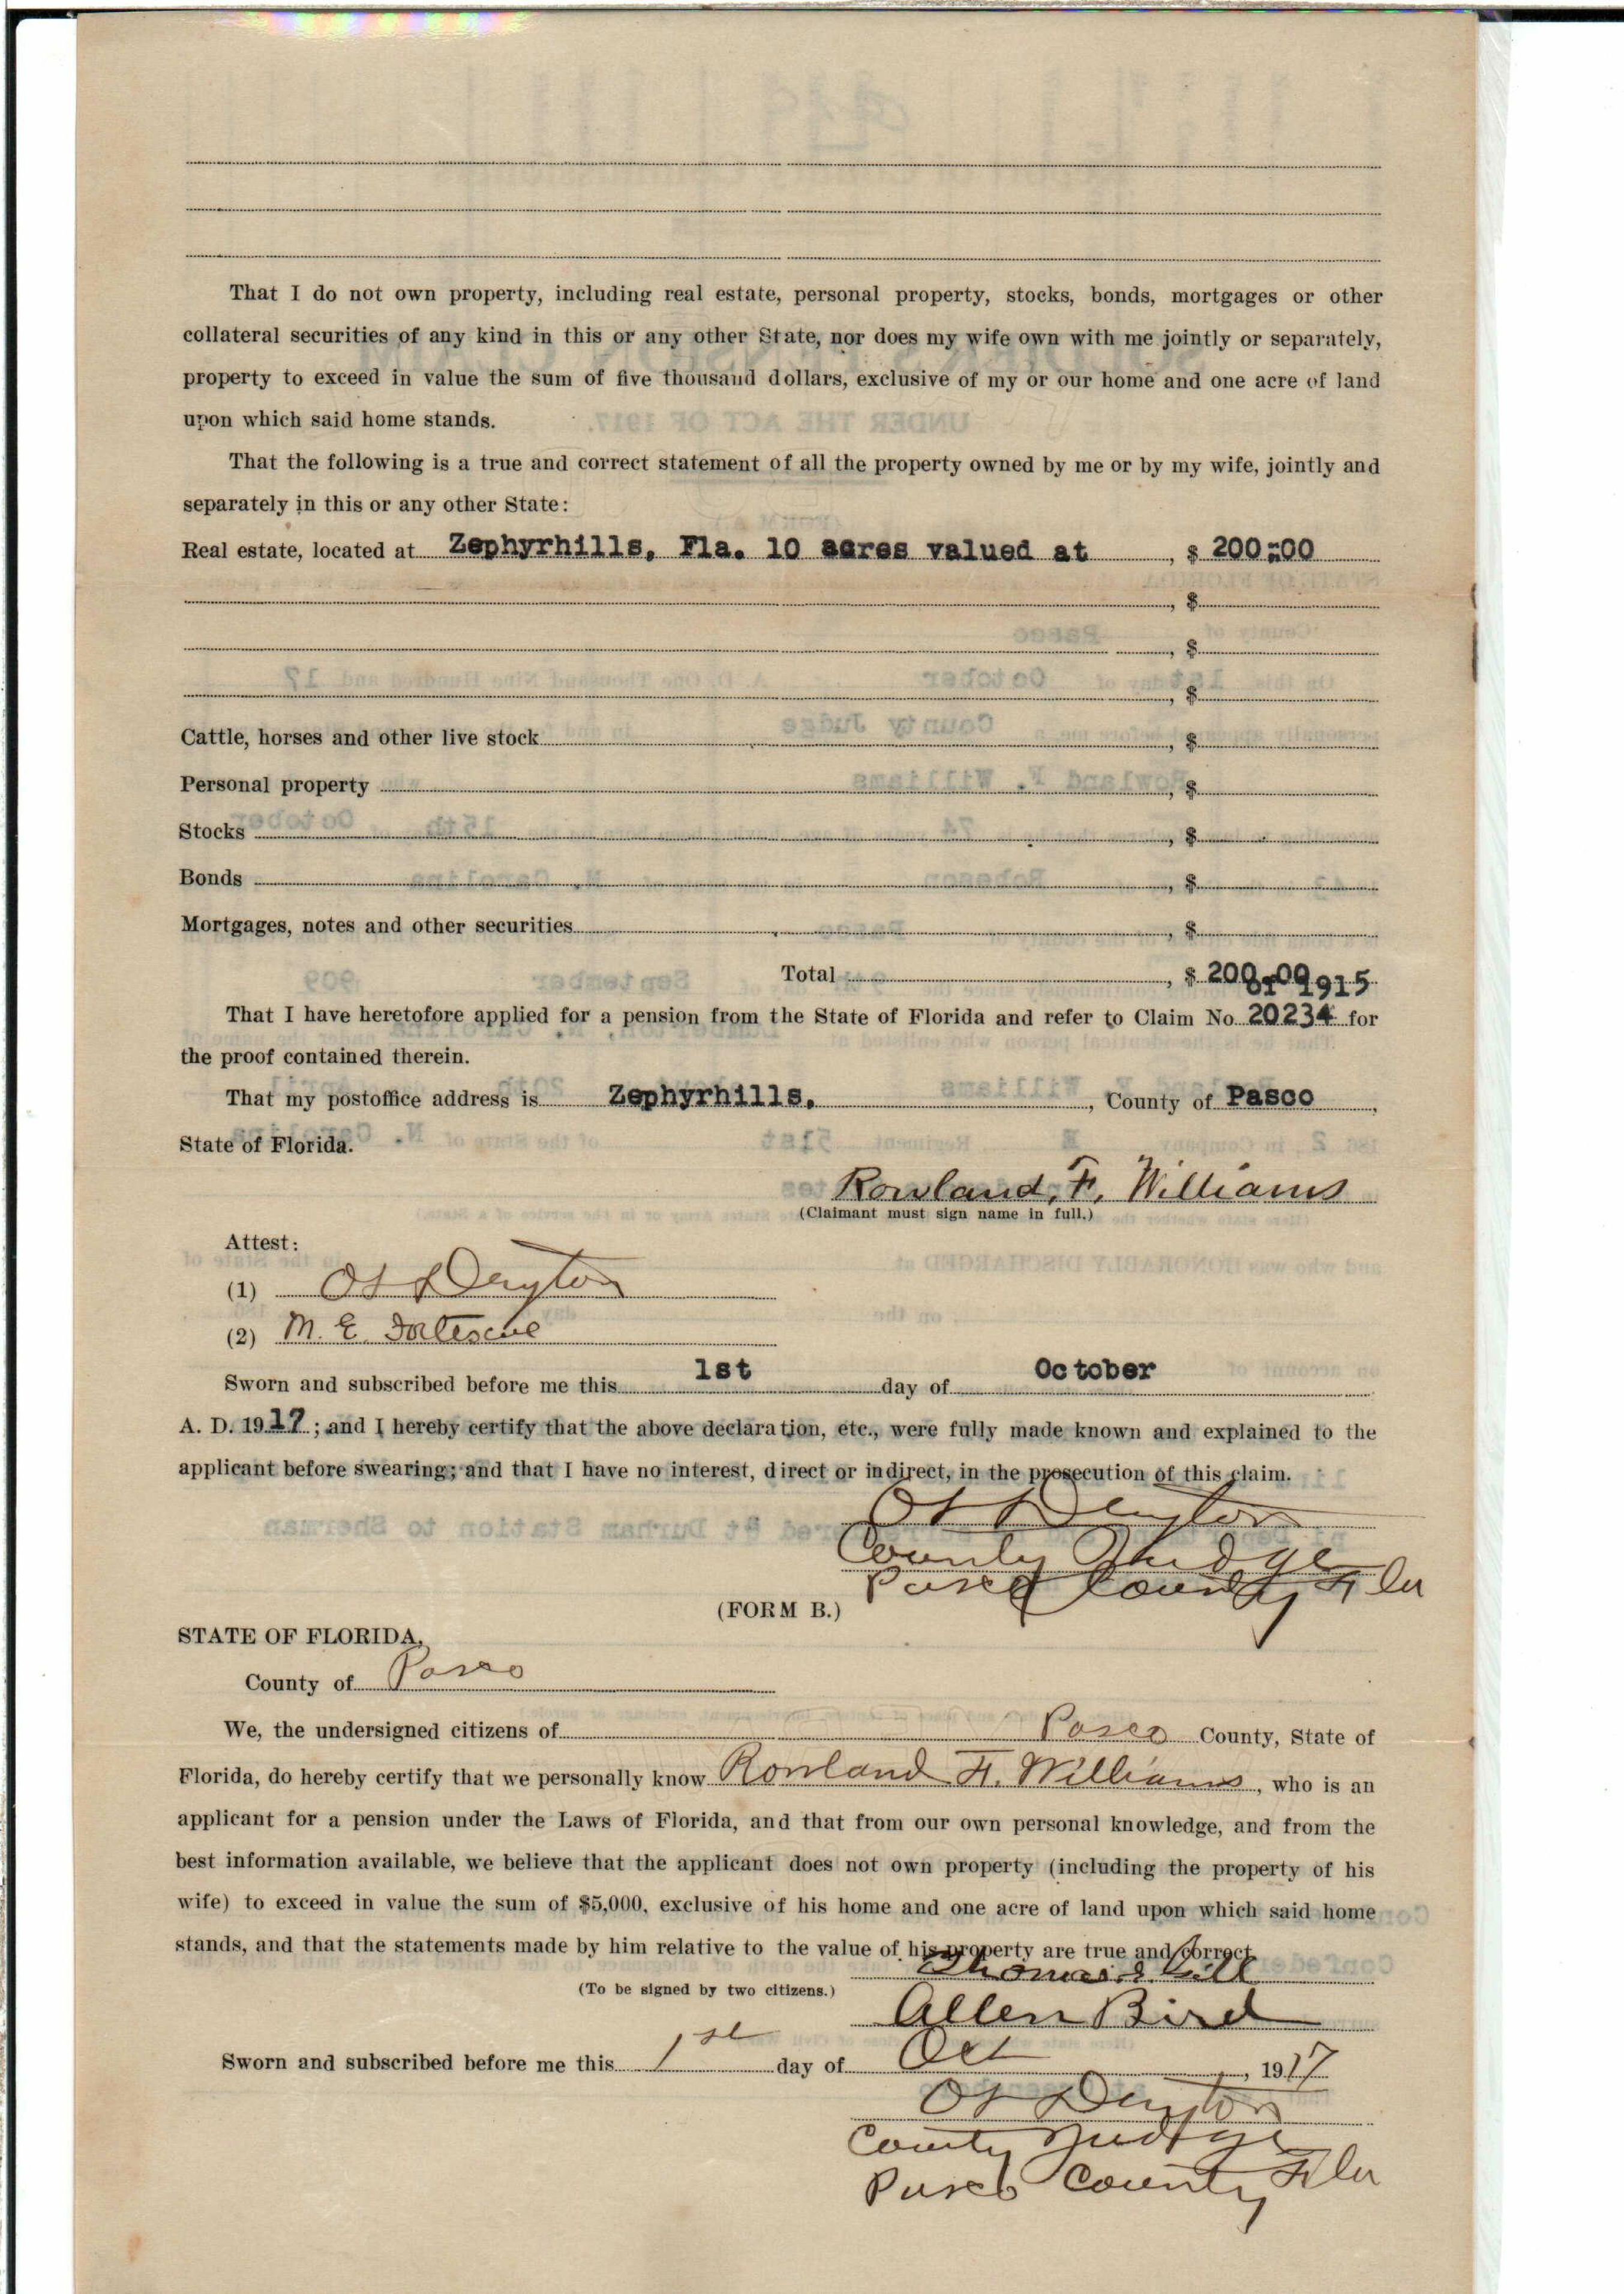 That I do not own property, including real estate, personal property, stocks, bonds, mortgages or other
collateral securities of any kind in this or any other State, nor does my wife own with me jointly or separately,
property to exceed in value the sum of five thousand dollars, exclusive of my or our home and one acre of land
upon which said home stands.
That the following is a true and correct statement of all the property owned by me or by my wife, jointly and
separately in this or any other State:
Real estate, located at Zephyrhills, Fla. 10 acres valued at, $ 200-00
, $
, $
, $
Cattle, horses and other live stock, $
Personal property, $
Stocks, $
Bonds, $
Mortgages, notes and other securities, $
Total, $ 200-00
of 1915
That I have heretofore applied for a pension from the State of Florida and refer to Claim No. 20234 for
the proof contained therein.
That my postoffice address is Zephyrhills, , County of Pasco,
State of Florida.
Rowland, F, Williams
(Claimant must sign name in full.)
Attest:
(1) O L Dayton
(2) M. E. Fortescue
Sworn and subscribed before me this 1st day of October
A. D. 1917; and I hereby certify that the above declaration, etc., were fully made known and explained to the
applicant before swearing; and that I have no interest, direct or indirect, in the prosecution of this claim.
O L Dayton
County Judge
Pasco County Fla
(FORM B.)
STATE OF FLORIDA,
County of Pasco
We, the undersigned citizens of Pasco County, State of
Florida, do hereby certify that we personally know Rowland F. Williams, who is an
applicant for a pension under the Laws of Florida, and that from our own personal knowledge, and from the
best information available, we believe that the applicant does not own property (including the property of his
wife) to exceed in value the sum of $5,000, exclusive of his home and one acre of land upon which said home
stands, and that the statements made by him relative to the value of his property are true and correct.
Thomas Gill
(To be signed by two citizens.)
Allen Bird
Sworn and subscribed before me this 1st day of Oct, 1917
O L Dayton
County Judge
Pasco County Fla